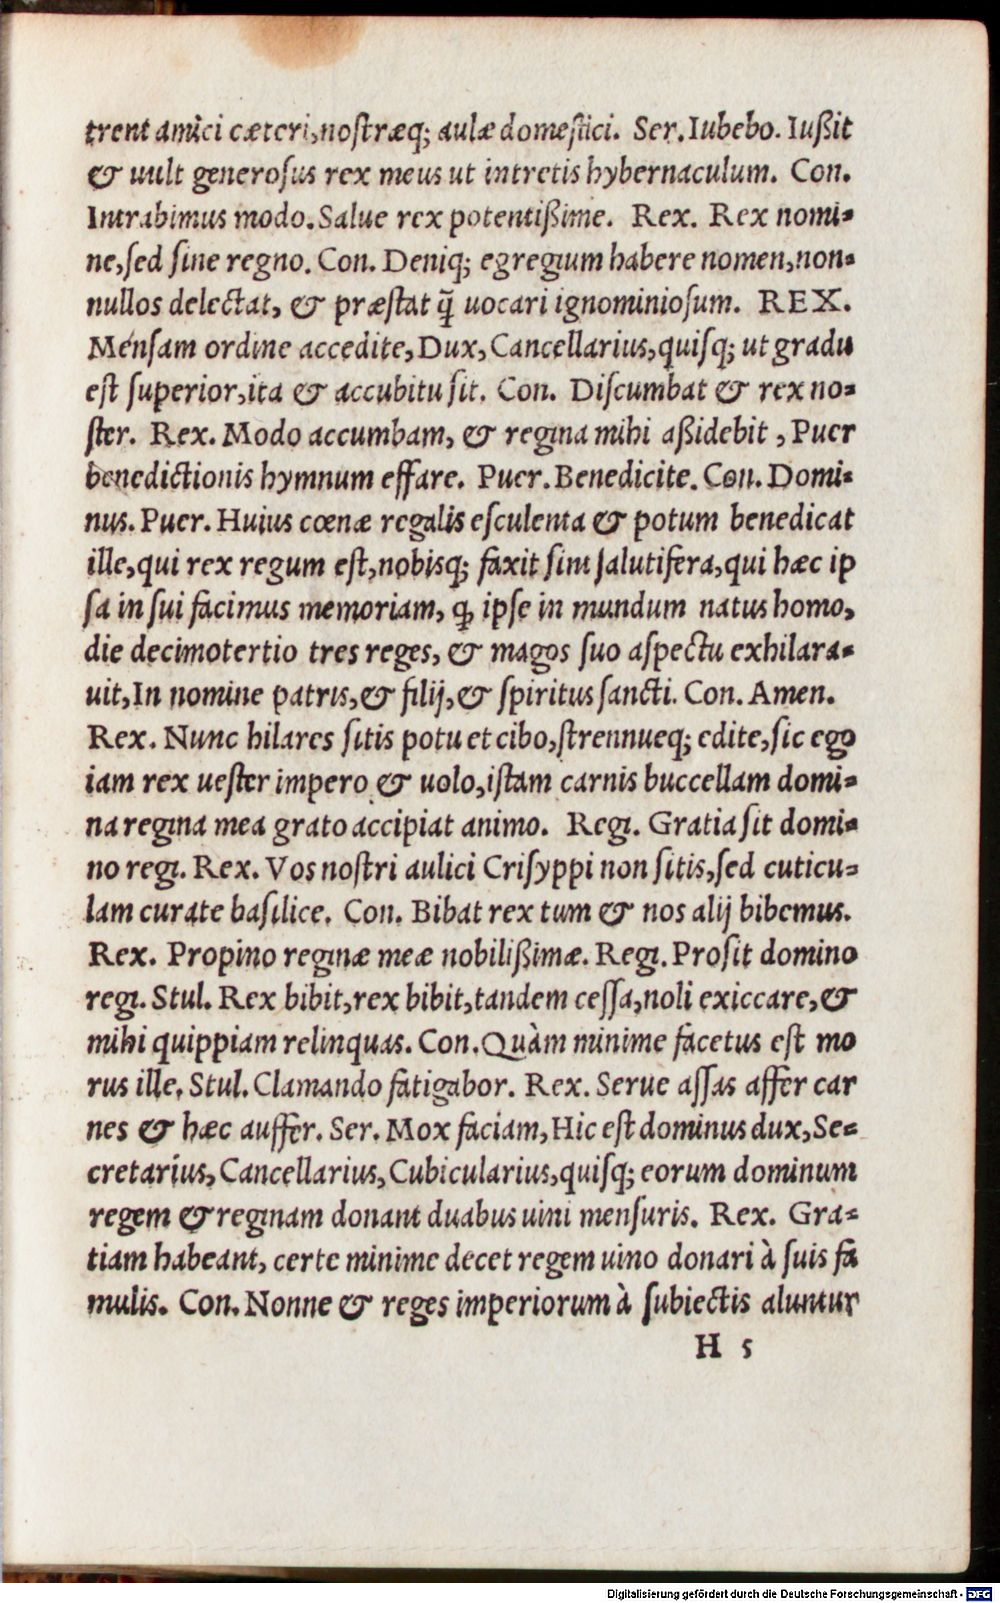 trent amici cæteri, nostræq; aulæ domestici. Ser. Iubebo. Iußit
& uult generosus rex meus ut intretis hybernaculum. Con.
Intrabimus modo. Salue rex potentißime. Rex. Rex nomi=
ne, sed sine regno. Con. Deniq; egregium habere nomen, non=
nullos delectat, & præstat q̃ uocari ignominiosum. REX.
Mensam ordine accedite, Dux, Cancellarius, quisq; ut gradu
est superior, ita & accubitu sit. Con. Discumbat & rex no=
ster. Rex. Modo accumbam, & regina mihi aßidebit, Puer
benedictionis hymnum effare. Puer. Benedicite. Con. Domi=
nus. Puer. Huius cœnæ regalis esculenta & potum benedicat
ille, qui rex regum est, nobisq; faxit sint salutifera, qui hæc ip
sa in sui facimus memoriam, ꝙ ipse in mundum natus homo,
die decimotertio tres reges, & magos suo aspectu exhilara=
uit, In nomine patris, & filij, & spiritus sancti. Con. Amen.
Rex. Nunc hilares sitis potu et cibo, strennueq; edite, sic ego
iam rex uester impero & uolo, istam carnis buccellam domi=
na regina mea grato accipiat animo. Regi. Gratia sit domi=
no regi. Rex. Vos nostri aulici Crisyppi non sitis, sed cuticu=
lam curate basilice. Con. Bibat rex tum & nos alij bibemus.
Rex. Propino reginæ meæ nobilißimæ. Regi. Prosit domino
regi. Stul. Rex bibit, rex bibit, tandem cessa, noli exiccare, &
mihi quippiam relinquas. Con. Quàm minime facetus est mo
rus ille. Stul. Clamando fatigabor. Rex. Serue assas affer car
nes & hæc auffer. Ser. Mox faciam, Hic est dominus dux, Se=
cretarius, Cancellarius, Cubicularius, quisq; eorum dominum
regem & reginam donant duabus uini mensuris. Rex. Gra=
tiam habeant, certe minime decet regem uino donari à suis fa
mulis. Con. Nonne & reges imperiorum à subiectis aluntur
H 5
Digitalisierung gefördert durch die Deutsche Forschungsgemeinschaft - DFG